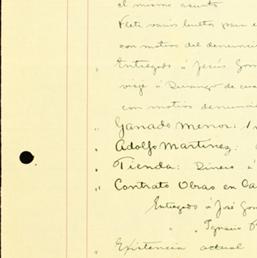 el mismo asunto
Flete varios bultos para e
con motivo del denuncio
Entregado á Jesús Gom
viaje á Durango de cua
con motivo denuncio
Ganado Menor:
Adolfo Martinez:
Tienda: Dinero á
Contrato Obras en Ca
Entregado á José Gon
" Ignacio
Existencia actual